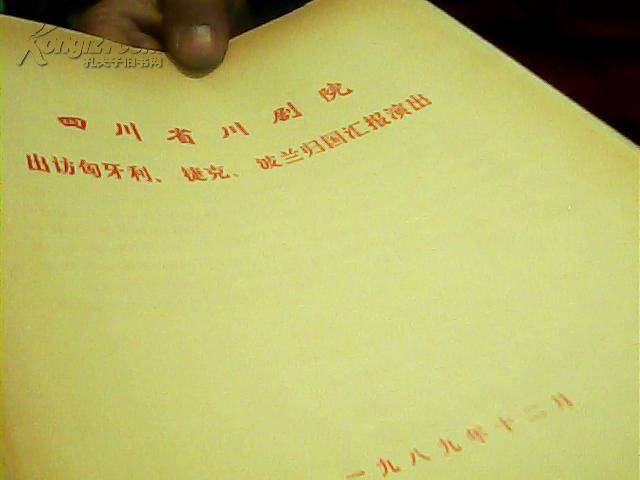 KongfZ.com
孔夫子旧书网
四川省川剧院
出访匈牙利、捷克、波兰归国汇报演出
一九八九年十二月